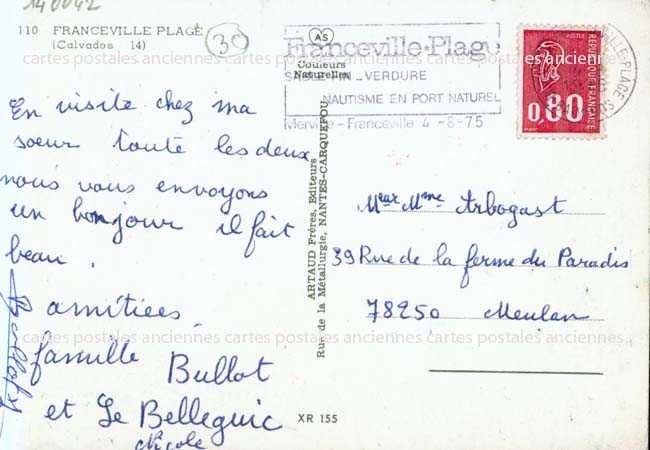 140042
110 FRANCEVILLE PLAGE
(Calvados 14)
30
AS
Couleurs
Naturelles
Franceville-Plage
SABLE FIN _ VERDURE
NAUTISME EN PORT NATUREL
Merville - Franceville 4 -8-75
POSTES
REPUBLIQUE FRANCAISE
0,80
cartes postales anciennes cartes postales anciennes cartes postales anciennes
En visite chez ma
soeur toute les deux
nous vous envoyons
un bonjour il fait
beau.
amitiées
famille Bullot
et Le Belleguic
Nicole
ARTAUD Frères, Editeurs
Rue de la Métallurgie, NANTES-CARQUEFOU
Mr et Mme Arbogast
39 Rue de la ferme du Paradis
78250 Meulan
cartes postales anciennes cartes postales anciennes cartes postales anciennes
XR 155